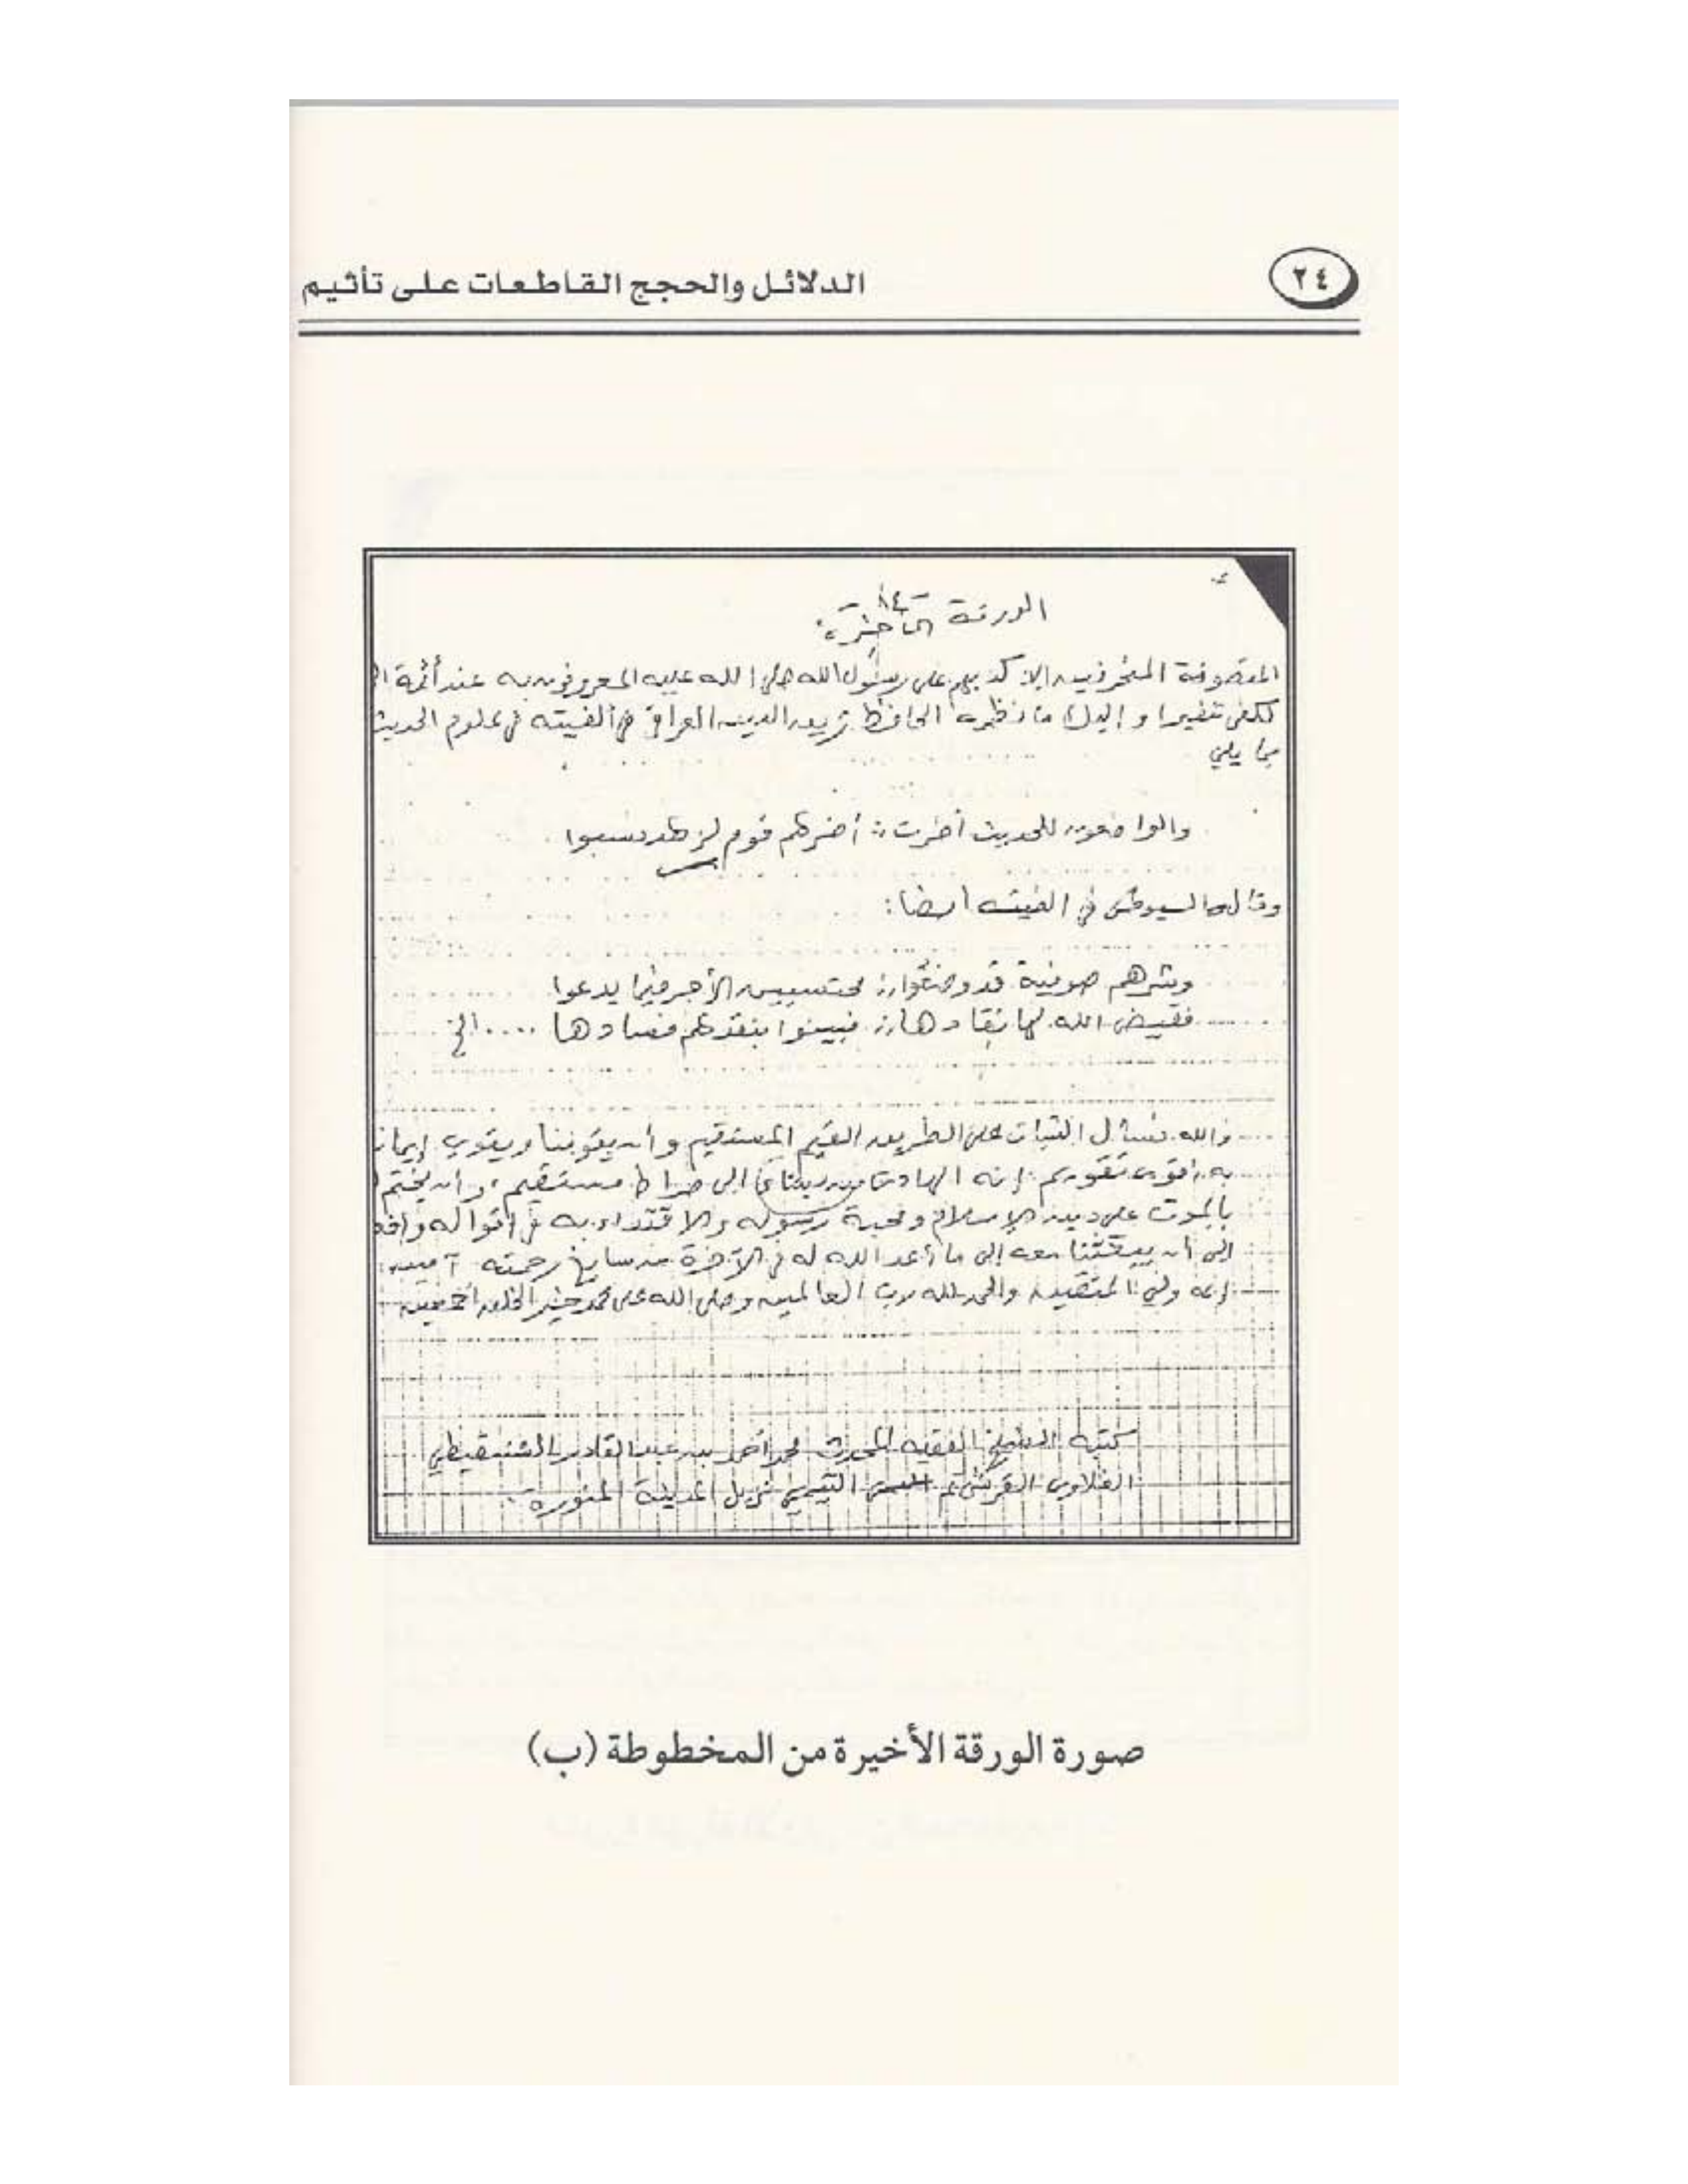 ٢٤
الدلائل والحجج القاطعات على تأثيم
الورقة الأخيرة
المتصوفة المنحرفين إلا كذبهم على رسول الله صلى الله عليه المعروفون به عند أئمة
لكفى تنفيرا وإليك ما نظمه الحافظ زين الدين العراقي في ألفيته في علوم الحديث
بما يلي
والواضعون للحديث أضرب : أضرهم قوم لزهد نسبوا
وقال السيوطي في الفيته أيضا :
وشرهم صوفية قد وضعوا : محتسبين الأجر فيما يدعوا
فقيض الله لها نقادها : فبينوا بنقدهم فسادها .... الخ
والله نسأل الثبات على الطريق القيم المستقيم وأن يقوينا ويقوي إيمان
به أقوى تقويم إنه الهادي من يشاء إلى صراط مستقيم، وأن يختم
بالموت على دين الإسلام ومحبة رسوله والاقتداء به في أقواله وافع
الى أن يبعثنا معه إلى ما أعد الله له في الآخرة من سابغ رحمته آمين
إنه ولي المتقين والحمد لله رب العالمين وصلى الله على محمد خير الخلق أجمعين
كتبه الشيخ الفقيه المحدث محمد أحمد بن عبد القادر الشنقيطي
الفلاوي القرشي ثم التيمي نزيل المدينة المنورة
صورة الورقة الأخيرة من المخطوطة (ب)